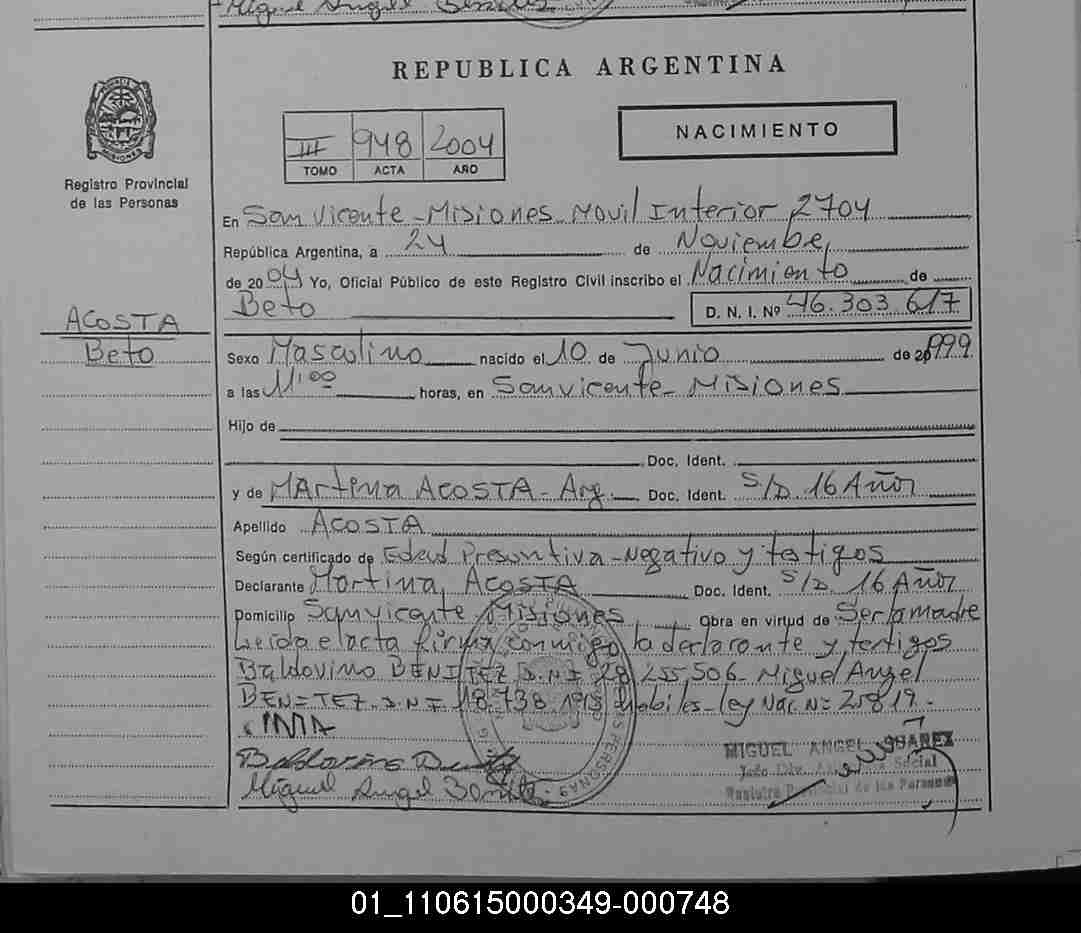 Miguel Angel Benitez
REPUBLICA ARGENTINA
NACIMIENTO
III 948 2004
TOMO ACTA AÑO
MISIONES
Registro Provincial
de las Personas
En San Vicente - Misiones Movil Interior 2704
República Argentina, a 24 de Noviembre,
de 2004 Yo, Oficial Público de este Registro Civil inscribo el Nacimiento de
Beto D. N. I. Nº 46.303.617
ACOSTA
Beto
Sexo Masculino nacido el 10 de Junio de 1999
a las 11:00 horas, en San Vicente - Misiones
Hijo de
Doc. Ident.
y de Martina ACOSTA - Arg. Doc. Ident. S/D. 16 Años
Apellido ACOSTA
Según certificado de Edad Presuntiva - Negativo y testigos
Declarante Martina, ACOSTA Doc. Ident. S/D. 16 Años
Domicilio San Vicente Misiones Obra en virtud de Ser la madre
Leida el acta firma conmigo la declarante y testigos
Baldovino BENITEZ D.N.I. 28.255.506 - Miguel Angel
BENITEZ - D.N.I. 18.738.1913 habiles - ley Nac. Nº 25819.-
Miguel Angel Benitez
MIGUEL ANGEL SUAREZ
Social
Registro Provincial de las Personas
01_110615000349-000748